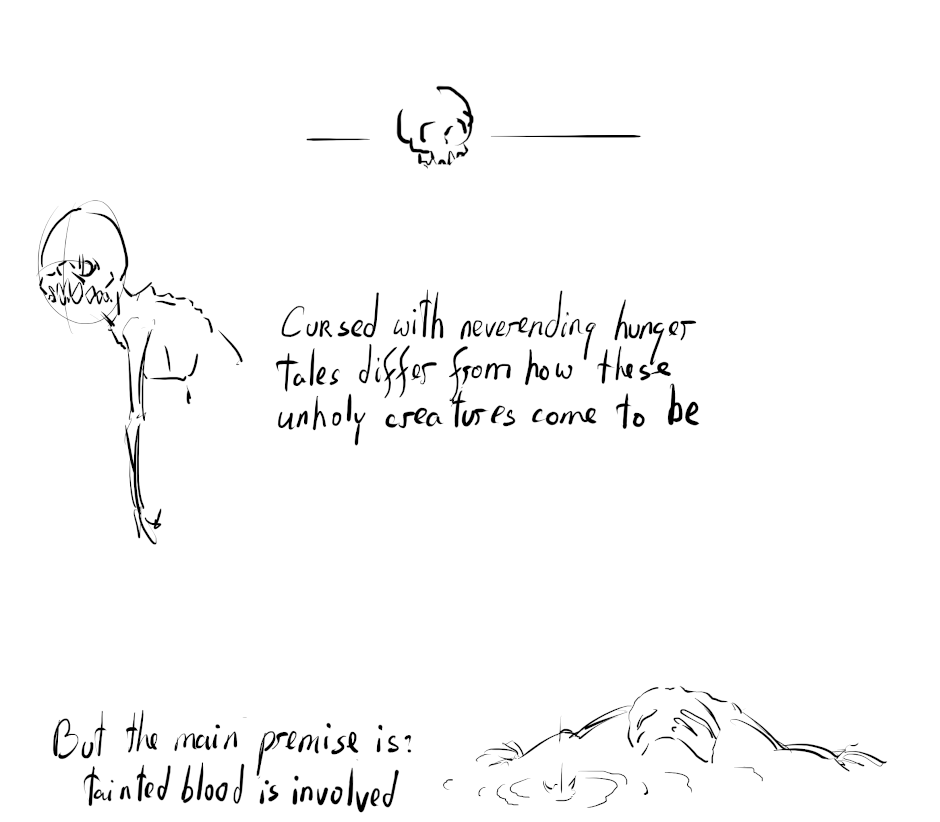 Cursed with neverending hunger
tales differ from how these
unholy creatures come to be
But the main premise is:
tainted blood is involved